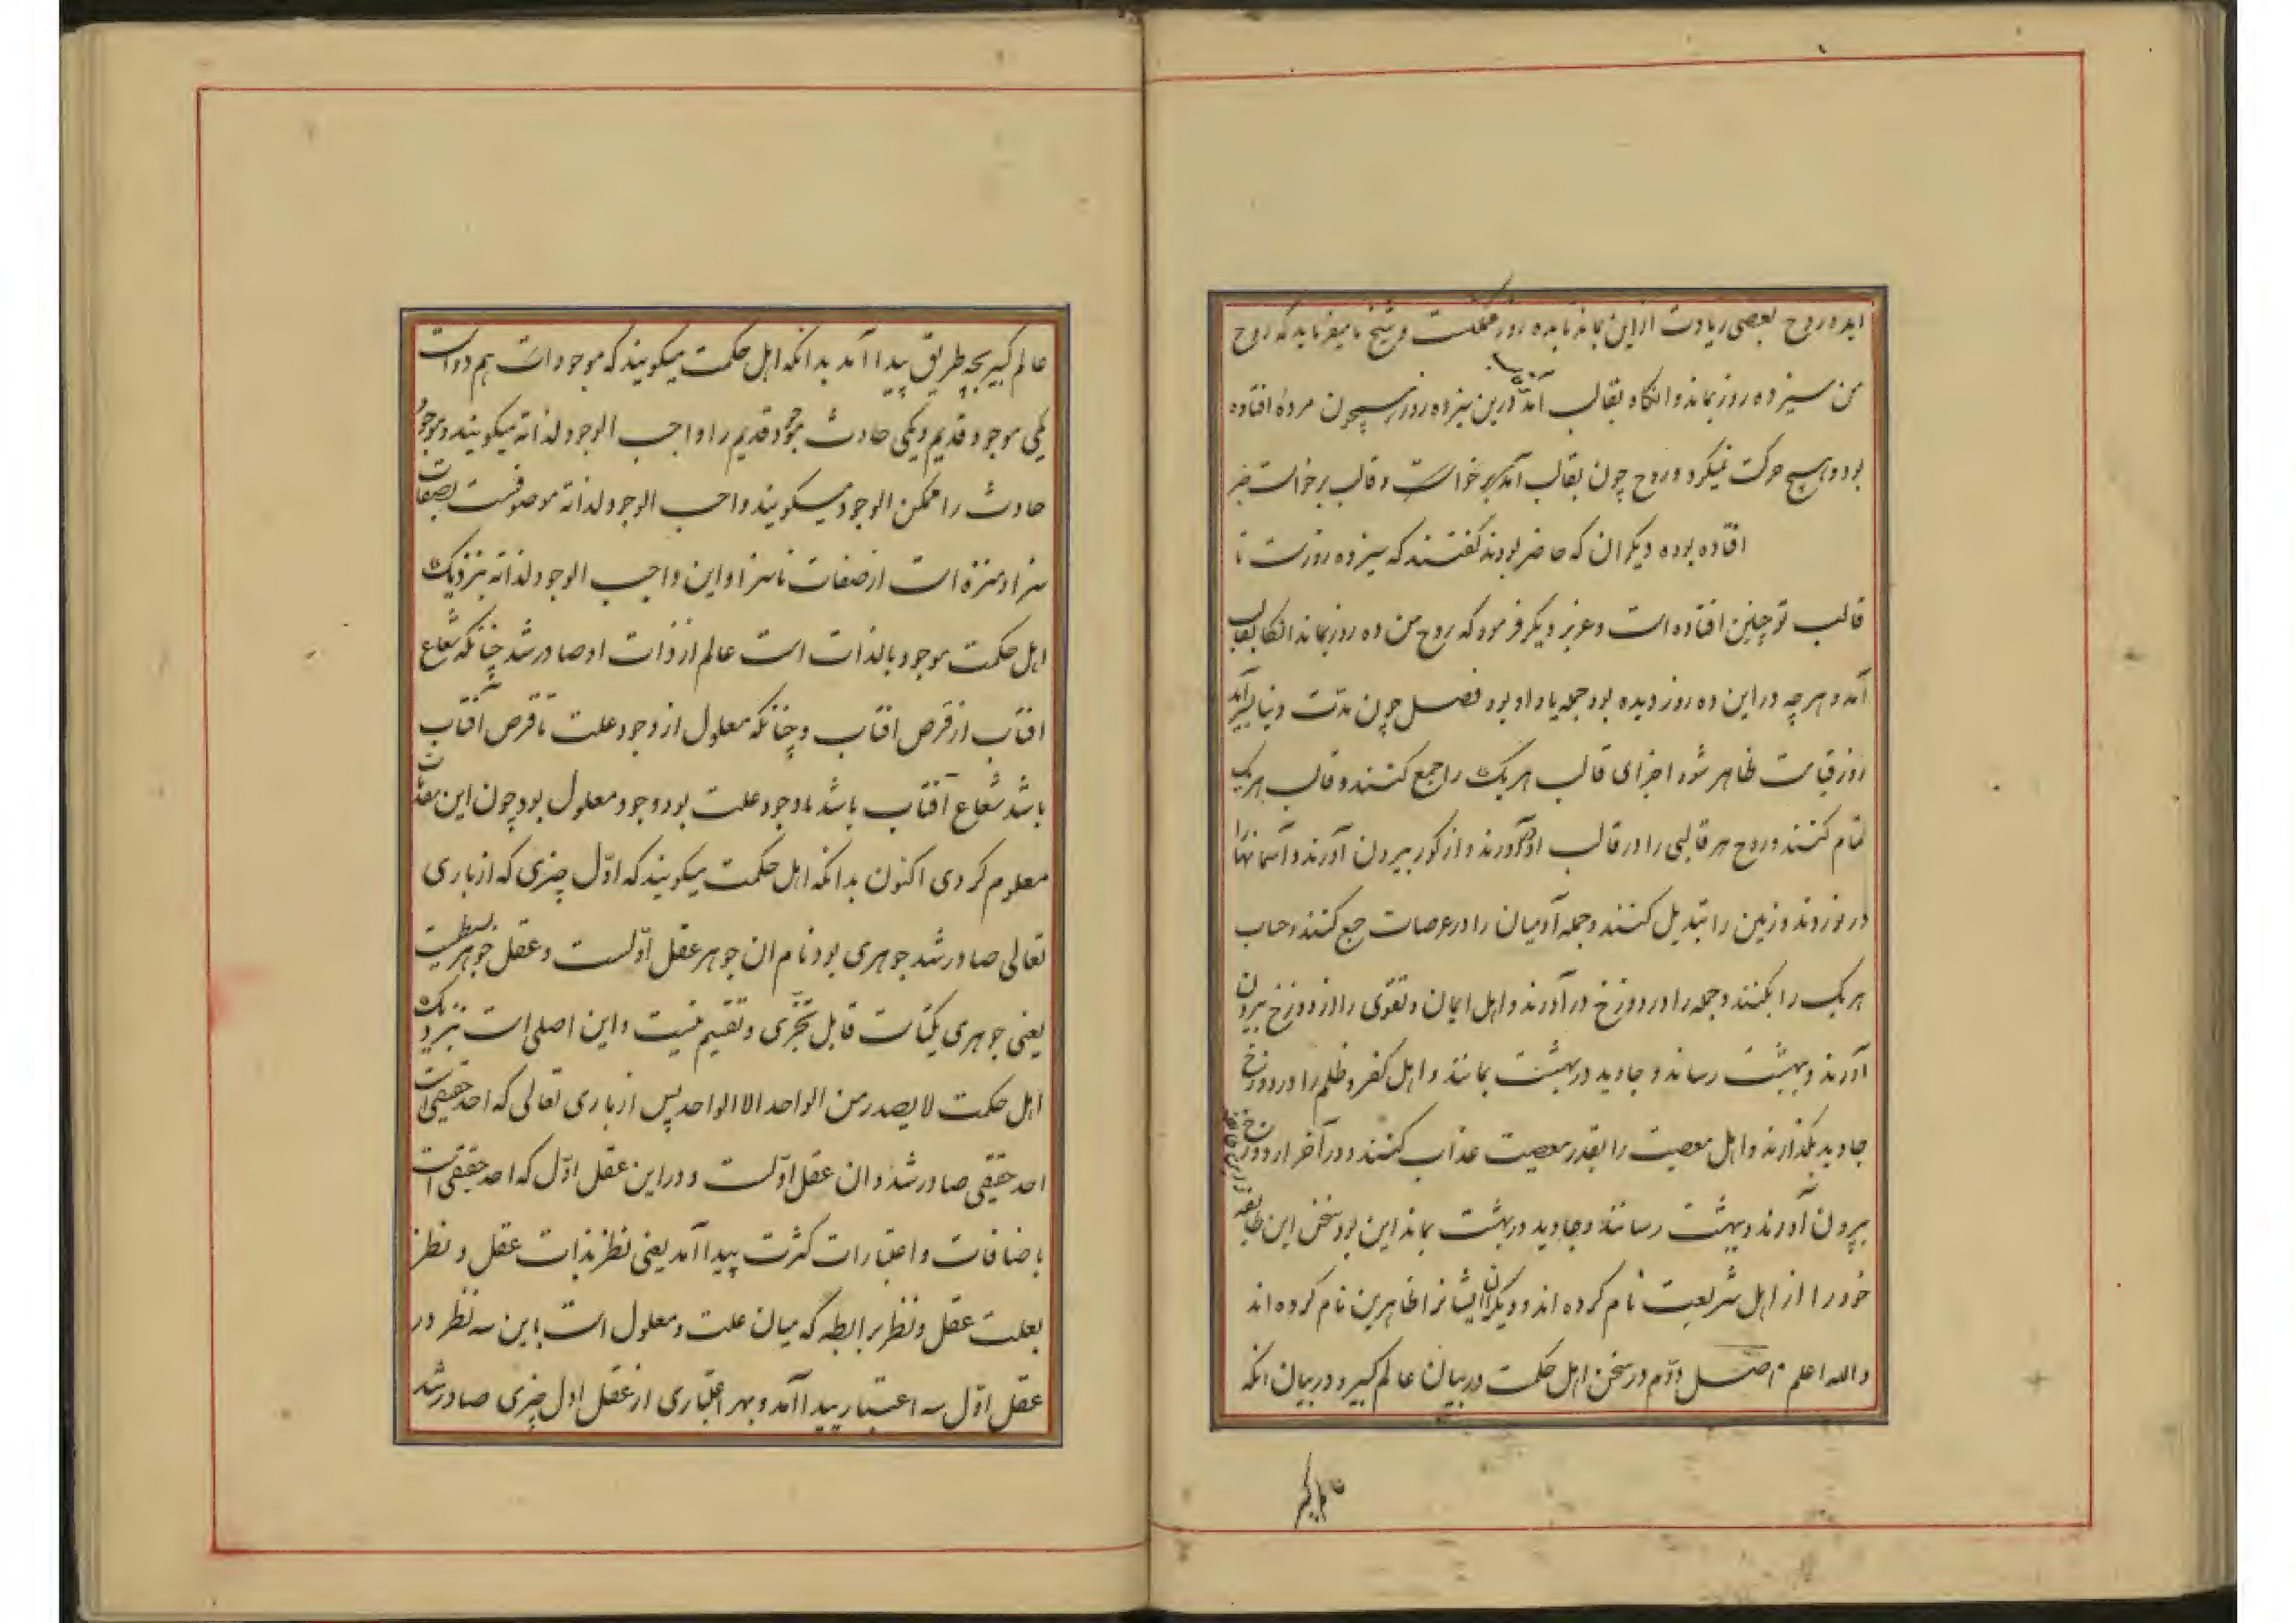 اید و روح بعضی زیادت ازین بماند تا بده روز ممکنست و شیخ ما میفرماید که روح
من سیزده روز بماند و انگاه بقالب آمد درین سیزده روز همچون مرده افتاده
بود و هیچ حرکت نمیکرد و روح چون بقالب آمد برخواست و قالب برخواست
افتاده بوده دیکران که حاضر بودند کفتند که سیزده روزست تا
قالب تو چنین افتاده است و عزیز دیکر فرمود که روح من ده روز بماند انکا بقالب
آمد و هر چه در این ده روز دیده بود جمله یاد او بود فصل چون مدت دنیا بسر آید
روز قیامت ظاهر شود اجزای قالب هر یک را جمع کنند و قالب هر یک
تمام کنند و روح هر قالبی را در قالب او در آورند و از کور بیرون آورند و آسمانها را
در نوردند و زمین را تبدیل کنند و جمله آدمیان را در عرصات جمع کنند و حساب
هر یک را بکنند و جمله را در دوزخ در آورند و اهل ایمان و تقوی را از دوزخ بیرون
آورند و بهشت رسانند و جاوید در بهشت بمانند و اهل کفر و ظلم را در دوزخ
جاوید بگذارند و اهل معصیت را بقدر معصیت عذاب کنند و در آخر از دوزخ
بیرون آورند و بهشت رسانند و جاوید در بهشت بمانند این بود سخن این طایفه
خود را از اهل شریعت نام کرده اند و دیکران ایشانرا ظاهرین نام کرده اند
و الله اعلم اصل دوّم در سخن اهل حکمت در بیان عالم کبیر و در بیان انکه
عالم کبیر
عالم کبیر بچه طریق پیدا آمد بدانکه اهل حکمت میکویند که موجودات هم دو است
یکی موجود قدیم و یکی حادث موجود قدیم را واجب الوجود لذاته میکویند و موجود
حادث را ممکن الوجود میکویند و واجب الوجود لذاته موصوفست بصفات
سزا و منزه است از صفات ناسزا و این واجب الوجود لذاته بنزدیک
اهل حکمت موجود بالذات است عالم از ذات او صادر شد چنانکه شعاع
افتاب از قرص افتاب و چنانکه معلول از وجود علت تا قرص آفتاب
باشد شعاع آفتاب باشد تا وجود علت بود وجود معلول بود چون این مقدمات
معلوم کردی اکنون بدانکه اهل حکمت میکویند که اوّل چیزی که از باری
تعالی صادر شد جوهری بود نام ان جوهر عقل اوّلست و عقل جوهر بسیطست
یعنی جوهری یکتاست قابل تجزّی و تقسیم نیست و این اصلی است بنزدیک
اهل حکمت لا یصدر من الواحد الا الواحد پس از باری تعالی که احد حقیقی است
احد حقیقی صادر شد و ان عقل اوّلست و در این عقل اوّل که احد حقیقی است
باضافات و اعتبارات کثرت پیدا آمد یعنی نظر بذات عقل و نظر
بعلت عقل و نظر برابطه که میان علت و معلول است باین سه نظر در
عقل اوّل سه اعتبار پیدا آمد و بهر اعتباری از عقل اول چیزی صادر شد